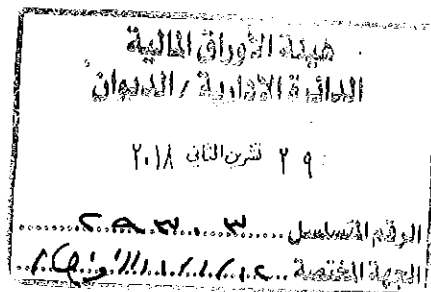 هيئة الأوراق المالية
الدائرة الادارية / الديوان
٢٩ تشرين الثاني ٢٠١٨
الرقم المتسلسل
الجهة المختصة